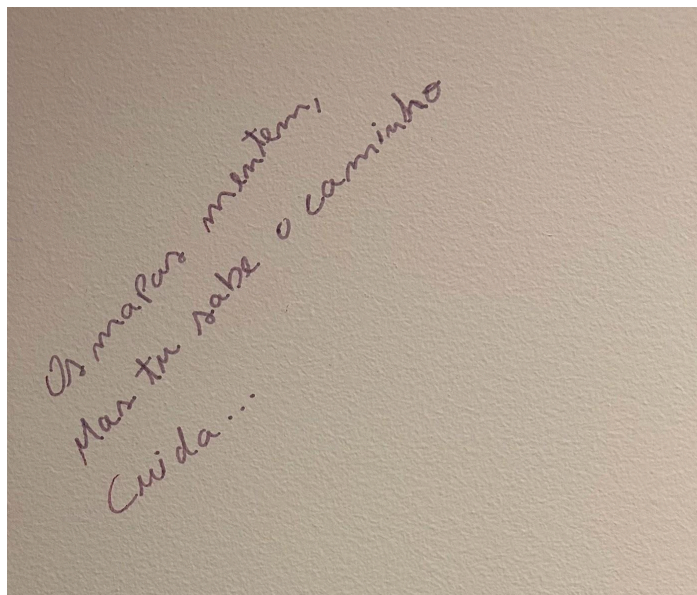 Os mapas mentem,
Mas tu sabe o caminho
Cuida...